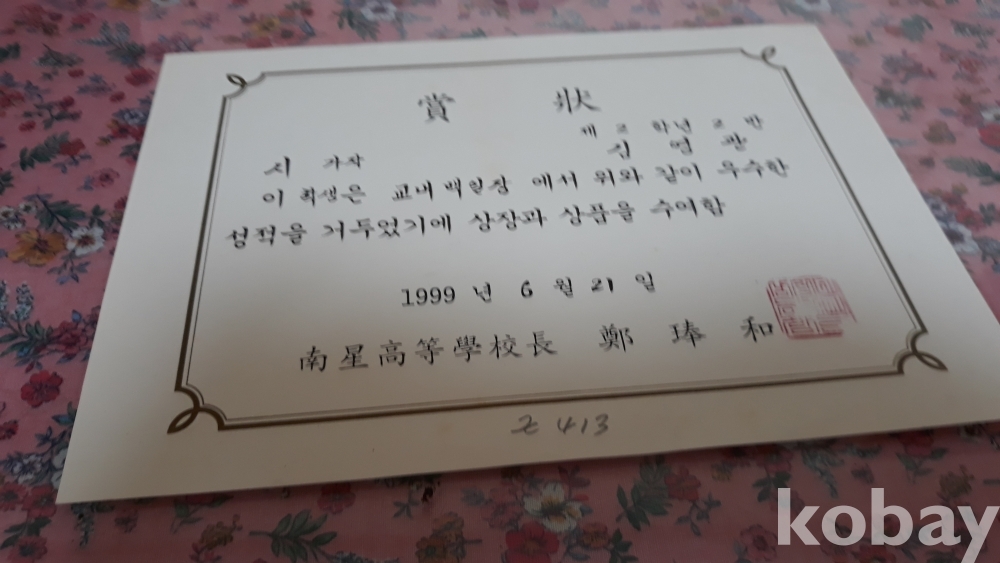 賞 狀
제 2 학년 2 반
시 가작 심 영 관
이 학생은 교내 백일장 에서 위와 같이 우수한
성적을 거두었기에 상장과 상품을 수여함
1999 년 6 월 21 일
南星高等學校長 鄭 琫 和
고 413
kobay